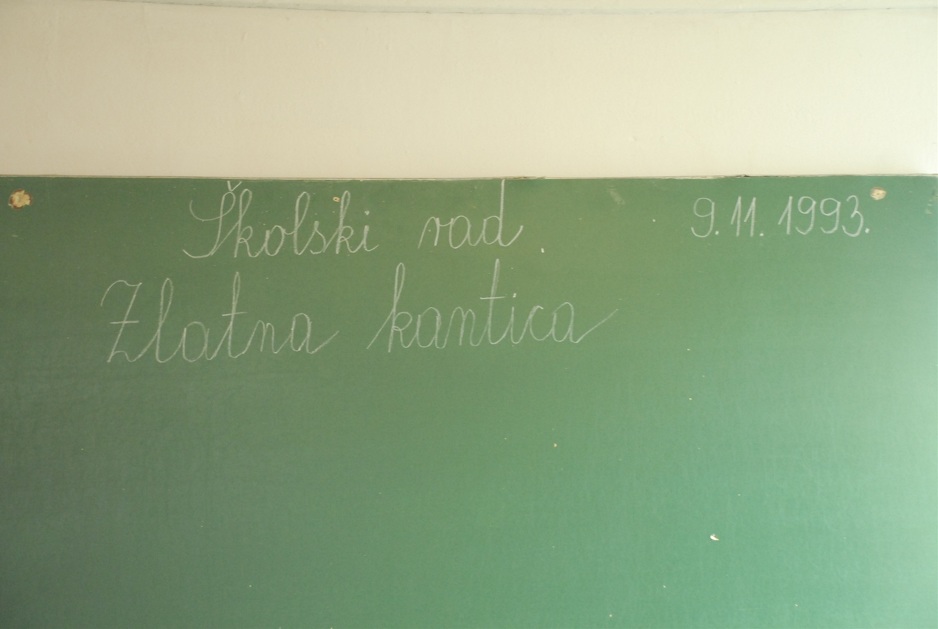 Školski rad 9.11.1993.
Zlatna kantica